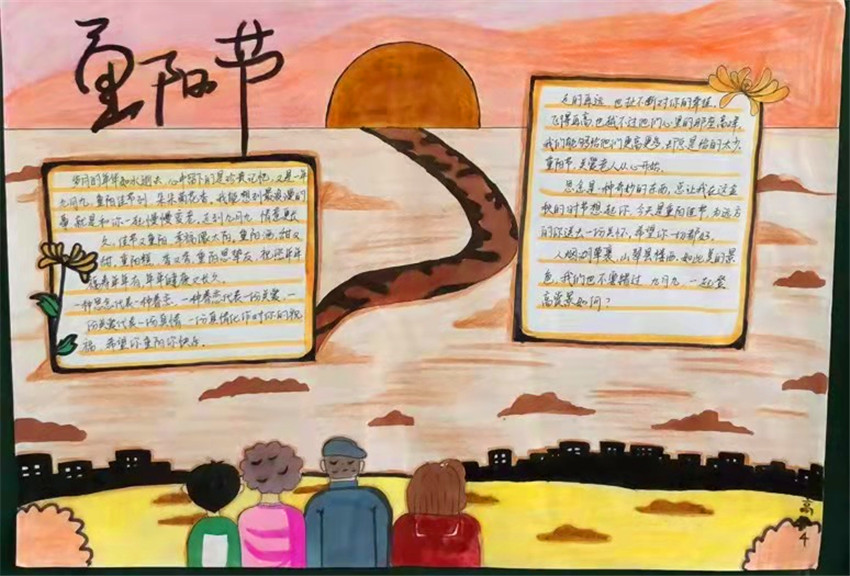 重阳节
岁月的年华如水逝去，心中留下的是珍贵记忆，又是一年
九月九，重阳佳节到，朵朵菊花香，我能想到最浪漫的
事，就是和你一起慢慢变老，又到九月九，情意更长
久，佳节又重阳，幸福像太阳，重阳酒，甜又
甜，重阳糕，香又香，重阳思挚友，祝您年年
有年年健康又长久。
一种思念代表一种眷恋，一种眷恋代表一份关爱，一
份关爱代表一份真情，一份真情化作对你的祝
福，希望你重阳你快乐。
走的再远，也扯不断对你的牵挂，
飞得再高，也抵不过他们心里的那座高峰，
我们能够给他们更高更多，却总是给的太少，
重阳节，关爱老人从心开始。
思念是一种奇妙的东西，总让我在这喜
悦的时节想起你，今天是重阳佳节，为远方
的你送去一份关怀，希望你一切都好。
人烟幼翠裹，山翠具情画，如此美的景
色，我们也不要错过，九月九，一起登
高赏景如何？
高
4